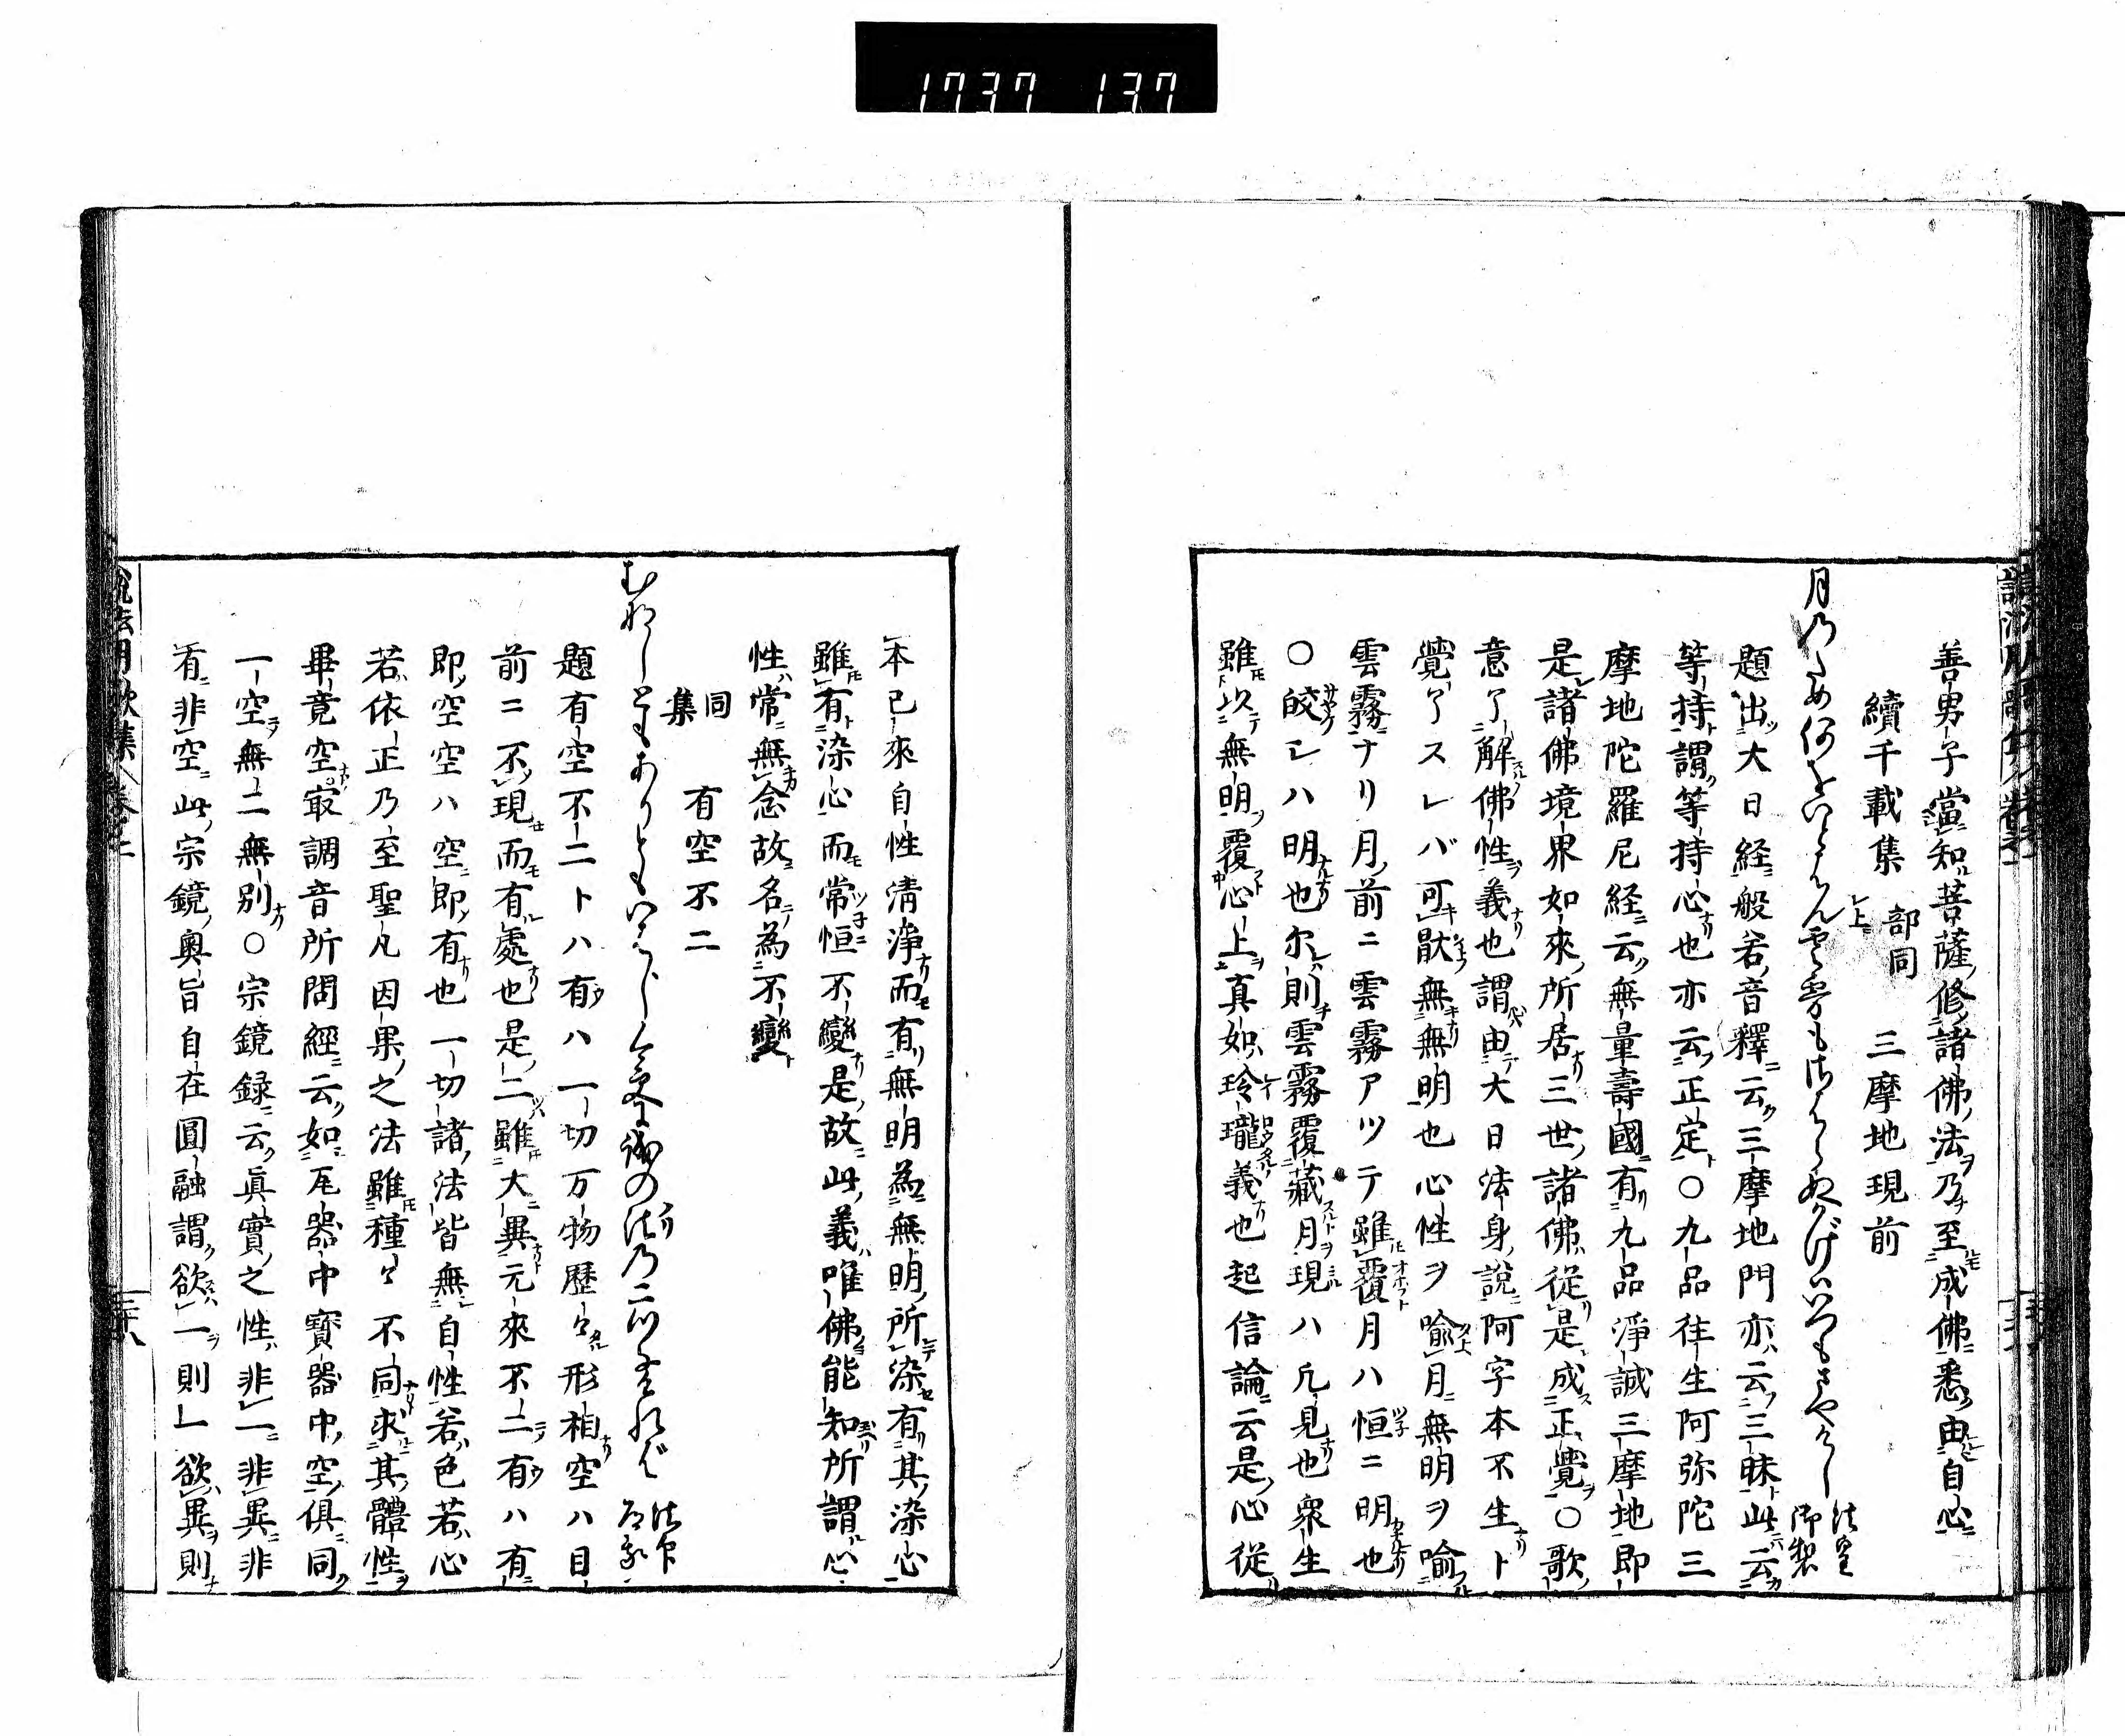 1737 137
善男子當知菩薩修諸佛法乃至成佛悉由自心
續千載集 部同上 三摩地現前
月乃ため何をいとはん雲霧もさはらぬかげはいつもさやけし 法皇御製
題出大日経般若音釋云三摩地門亦云三昧此云
等持謂等持心也亦云正定〇九品往生阿弥陀三
摩地陀羅尼経云無量壽國有九品淨誠三摩地即
是諸佛境界如來所居三世諸佛從是成正覺〇歌
意了解佛性義也謂由大日法身說阿字本不生ト
覺了スレバ可猒無無明也心性ヲ喩月無明ヲ喩
雲霧ナリ月前ニ雲霧アツテ雖覆月ハ恒ニ明也
〇皎レハ明也尓則雲霧覆藏月現ハ凢見也衆生
雖以無明覆心上真如玲瓏義也起信論云是心從
本已來自性清淨而有無明為無明所染有其染心
雖有染心而常恒不變是故此義唯佛能知所謂心
性常無念故名為不變
同集 有空不二
むなしともありともいはじ 法乃二つなければ 法印
題有空不二トハ有ハ一切万物歴々形相空ハ目
前ニ不現而有處也是二雖大異元來不二有ハ有
即空空ハ空即有也一切諸法皆無自性若色若心
若依正乃至聖凡因果之法雖種々不同求其體性
畢竟空寂調音所問經云如瓦器中寳器中空俱同
一空無二無別〇宗鏡録云眞實之性非一非異非
有非空此宗鏡奧旨自在圓融謂欲一則一欲異則
說法明歌集 卷之二 三十八